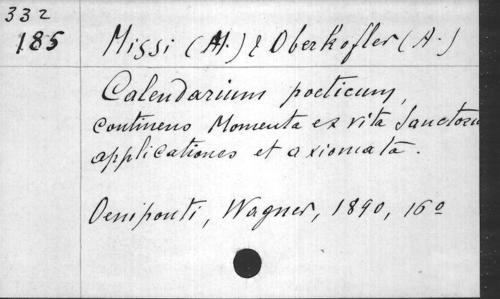 332
185
Missi (M.) & Oberkofler (A.)
Calendarium poeticum,
continens Momenta ex vita Sanctoru
applicationes et axiomata.
Oeniponti, Wagner, 1890, 16o